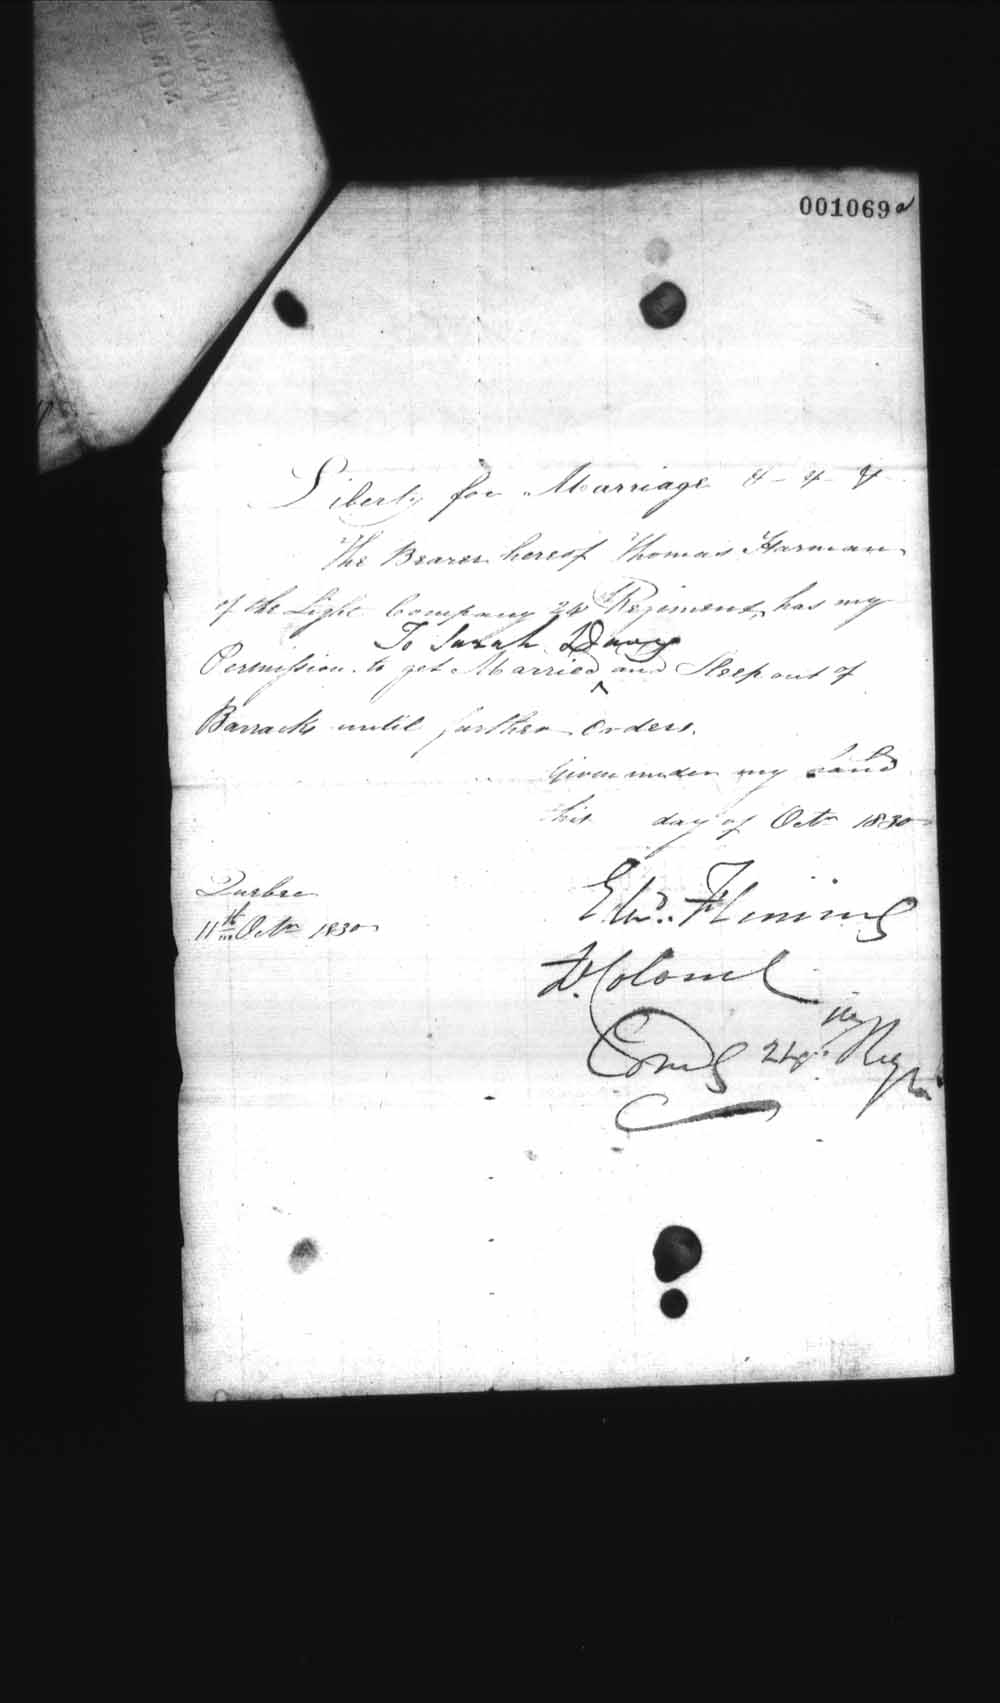 001069 a
Liberty for Marriage &-&-&
The Bearer hereof Thomas Harman
of the Light Company 24th Regiment, has my
To Sarah Davy
Permission to get Married ^ and Sleep out of
Barracks until further orders.
Given under my hand
this day of Octr 1830
Quebec
11th Octr 1830
Edwd. Fleming
Lt. Colonel
Comdg 24th Regt